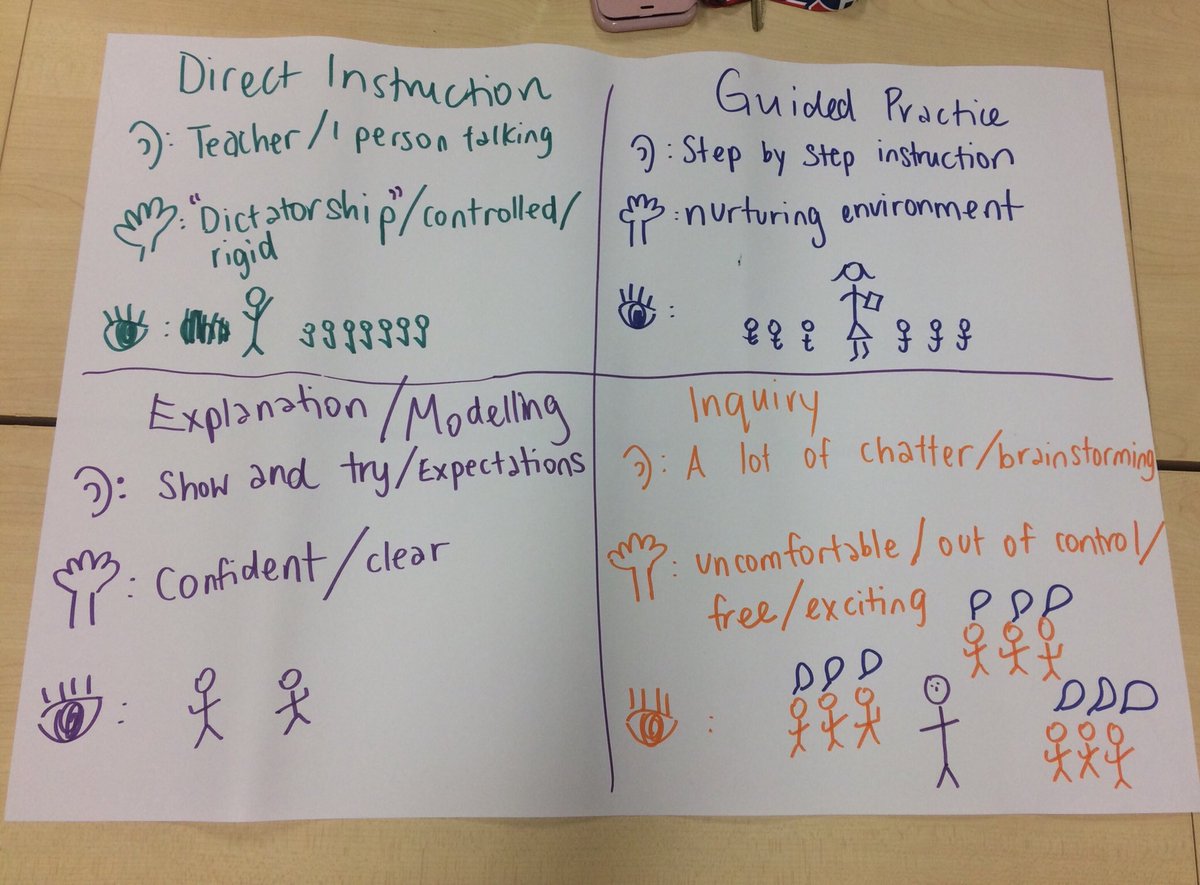 Direct Instruction
: Teacher/1 person talking
: "Dictatorship"/controlled/
rigid
:
Guided Practice
: Step by step instruction
: nurturing environment
:
Explanation/Modelling
: Show and try/Expectations
: Confident/clear
:
Inquiry
: A lot of chatter/brainstorming
: uncomfortable/out of control/
free/exciting
: